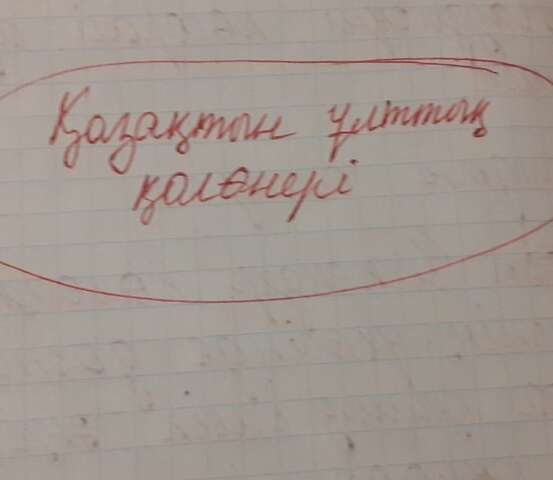 Қазақтын ұлттық
қолөнері